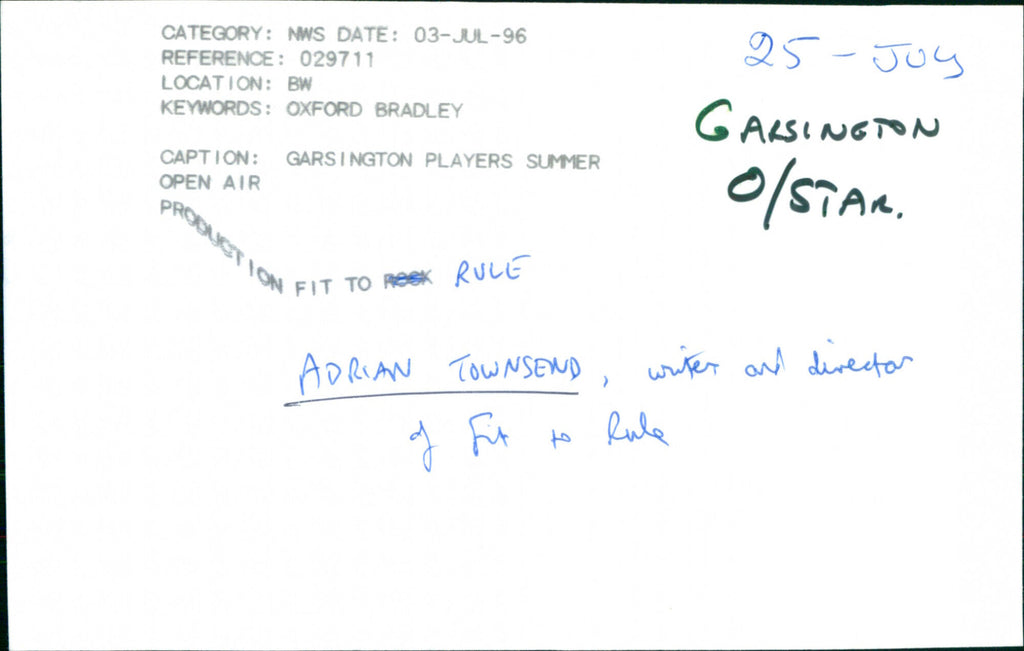 CATEGORY: NWS DATE: 03-JUL-96
REFERENCE: 029711
LOCATION: BW
KEYWORDS: OXFORD BRADLEY
CAPTION: GARSINGTON PLAYERS SUMMER
OPEN AIR
PRODUCTION FIT TO ROCK RULE
25 - JULY
GARSINGTON
O/STAR.
ADRIAN TOWNSEND, writer and director
of Fit to Rule